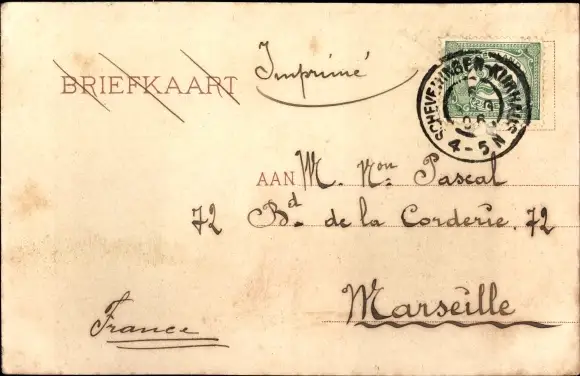 BRIEFKAART Imprimé
SCHEVENINGEN-KURHAUS
4-5N
AAN M. Non Pascal
72 Bd. de la Corderie. 72
Marseille
France